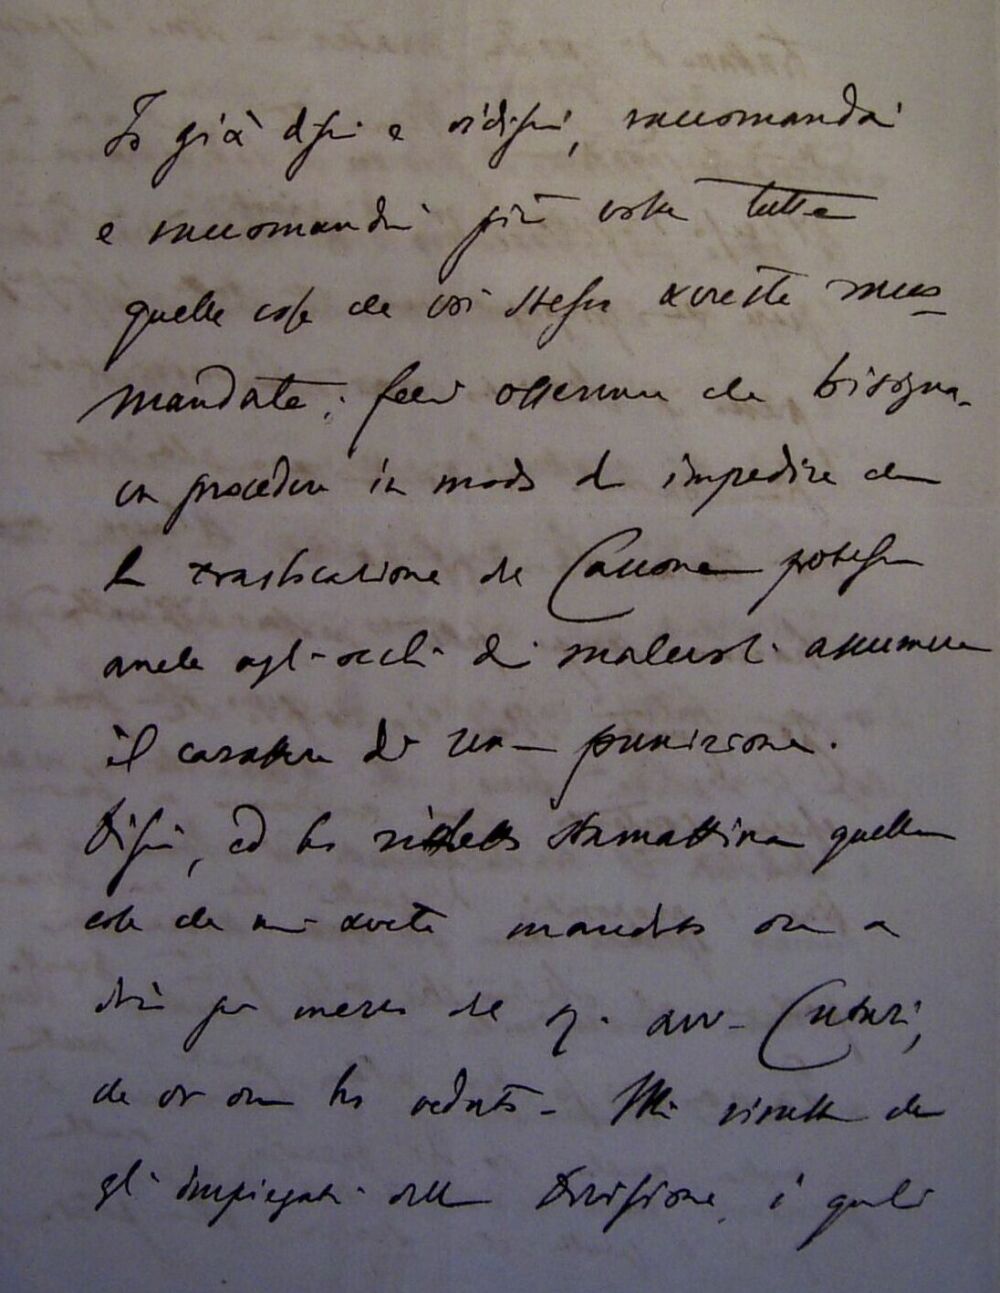 Io già dissi e ridissi, raccomandai
e raccomandai più volte tutte
quelle cose che voi stesso avreste racco=
mandate; feci osservare che bisogna-
va procedere in modo d'impedire che
la traslocazione del Caccone potesse
anche agli occhi di malevoli assumere
il carattere di una punizione.
Dissi, ed ho ridetto stamattina quelle
cose che mi avete mandato ora a
dire per mezzo del avv. Cuturi,
che or ora ho veduto - Mi risulta che
gli impiegati della Divisione, i quali